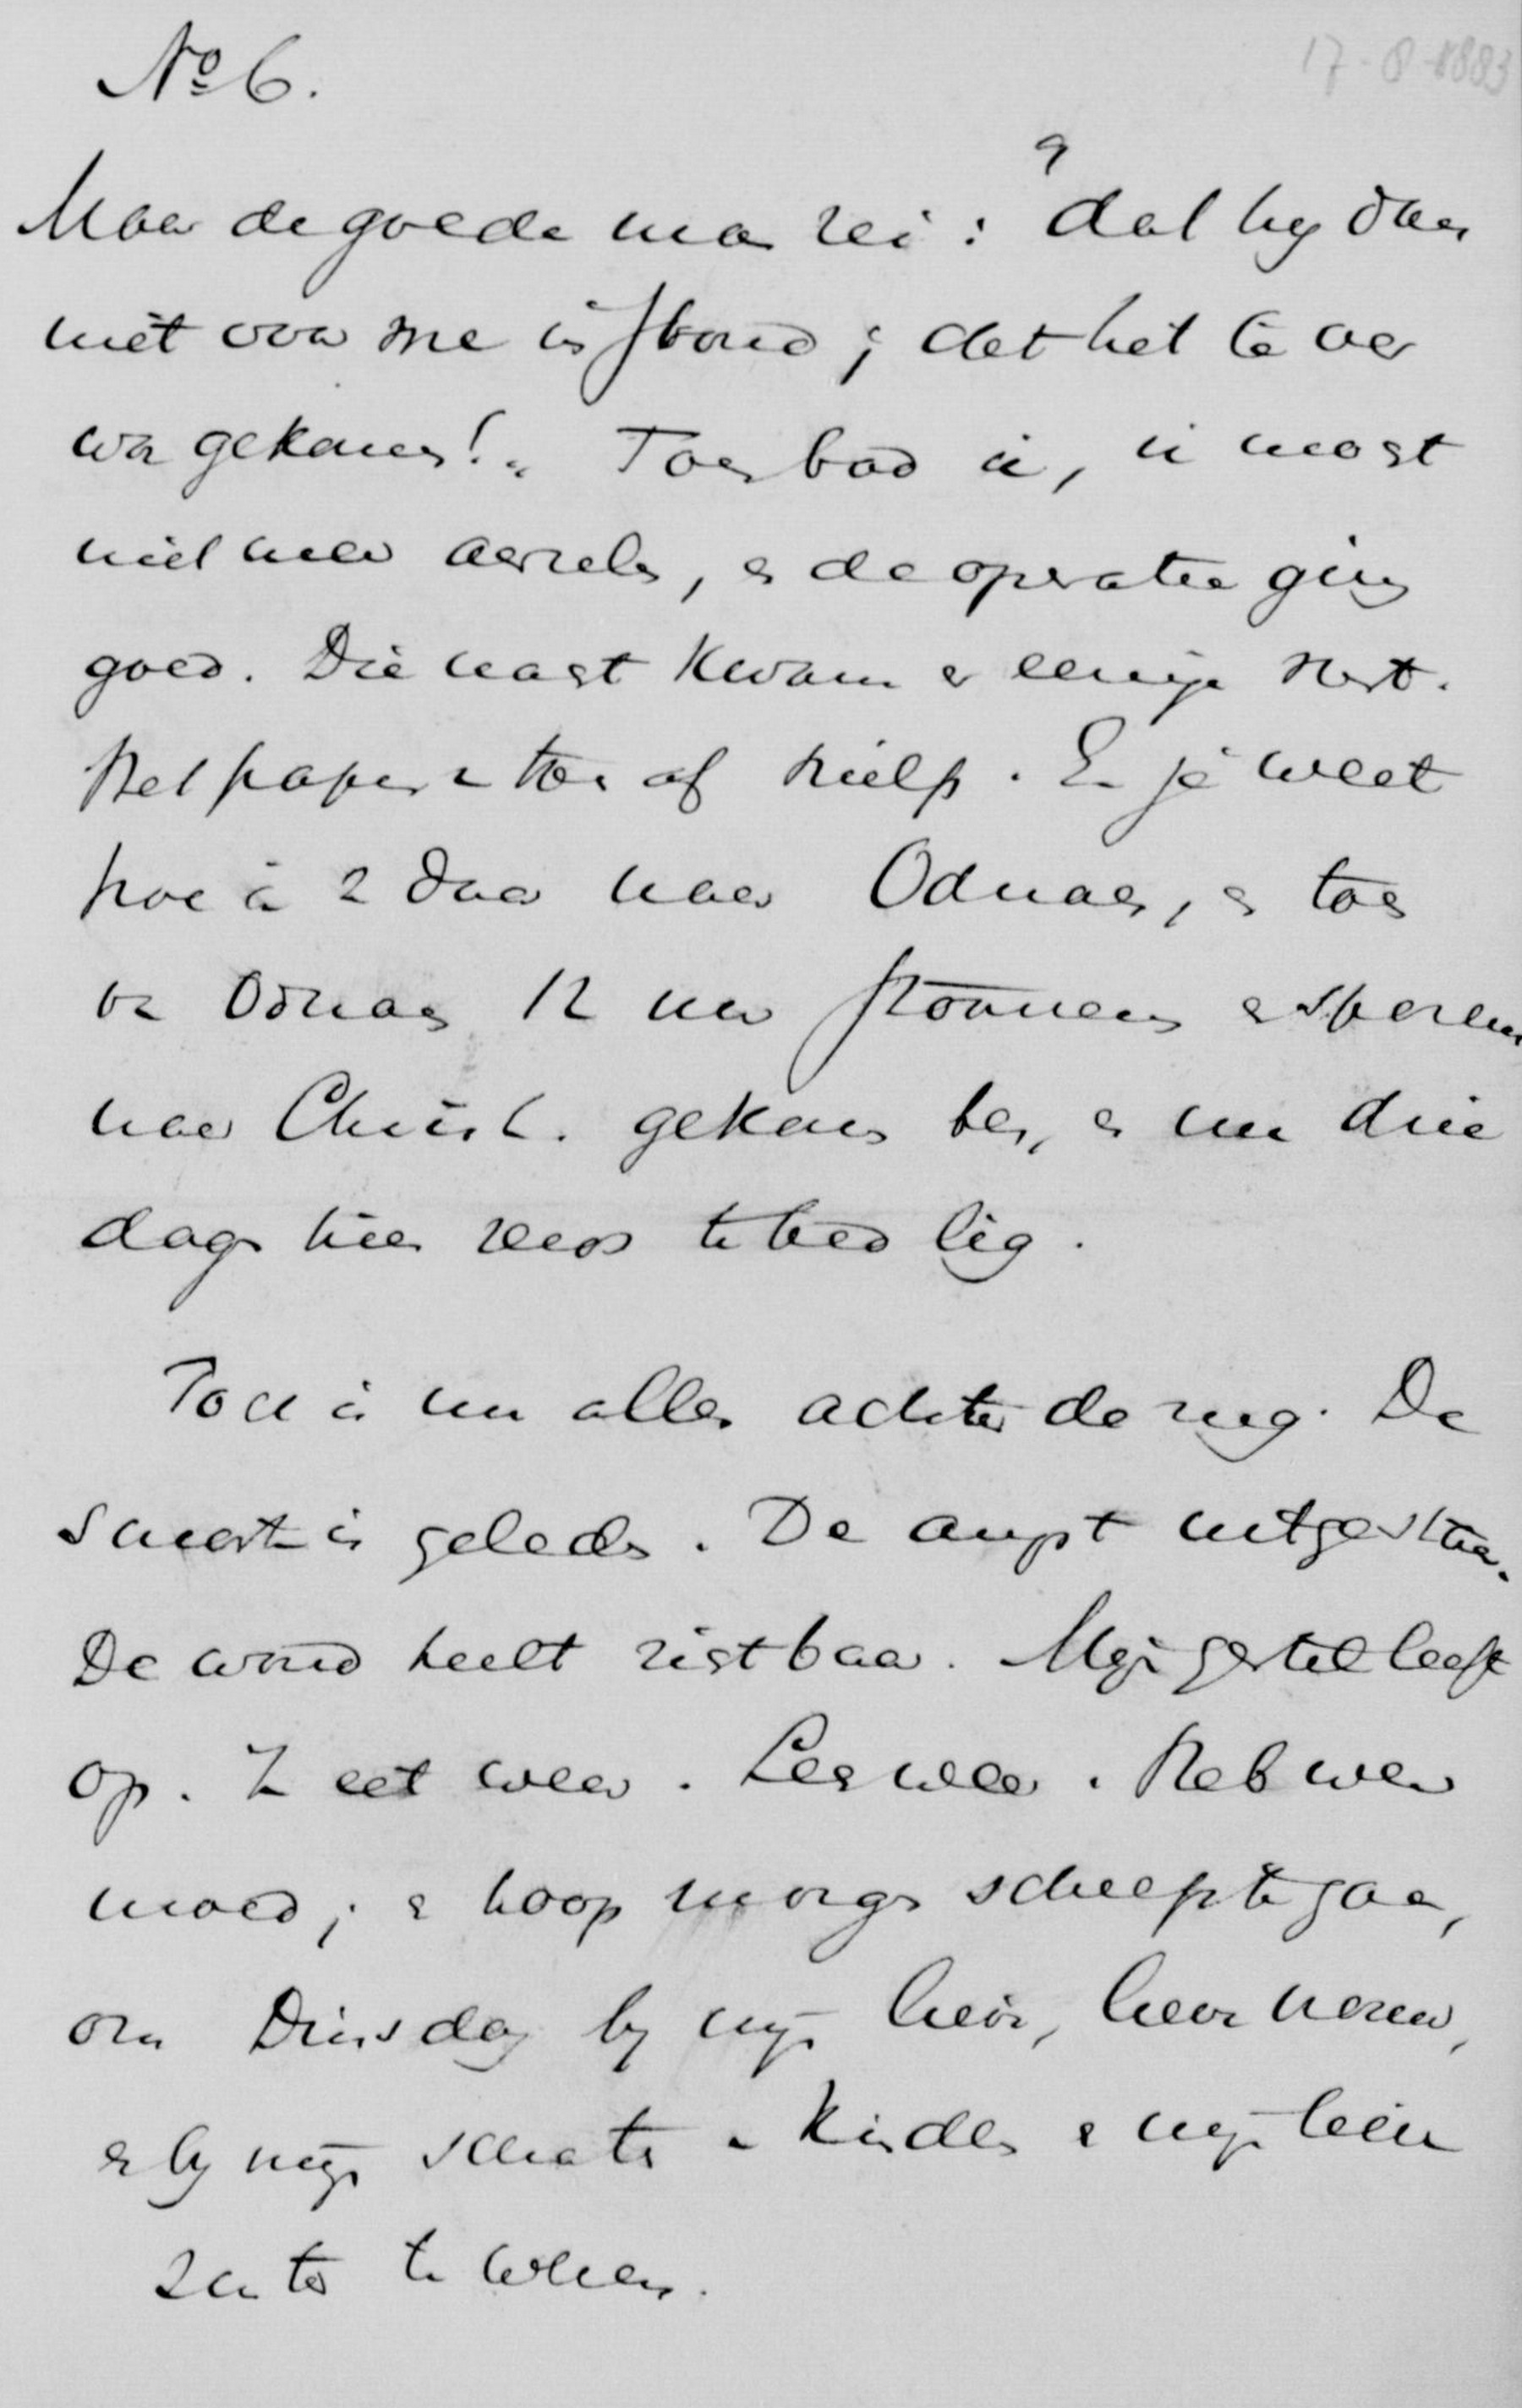 No 6.
17-8-1883
Maar de goede man zei: "dat hy daar
niet voor me in stond; dat het te ver
was gekomen!" Toen bad ik, ik mogt
niet meer aarzelen, en de operatie ging
goed. Die nagt kwam er eenige rust.
Het papier er toen af hielp. En je weet
hoe ik 2 daar naar Odnaes, en toen
van Odnaes 12 uur stoomen en sporen
naar Christ. gekomen ben, en nu drie
dagen hier reeds te bed lig.
Toch is nu alles achter de rug. De
smart is geleden. De angst uitgestaan.
De wond heelt zigtbaar. Mijn gestel leeft
op. Ik eet weer. Lees weer. Heb weer
moed; en hoop morgen scheep te gaan,
om Dinsdag by mijn lieve, lieve vrouw,
en by mijn schats van kinderen en mijn lieve
zuster te wezen.